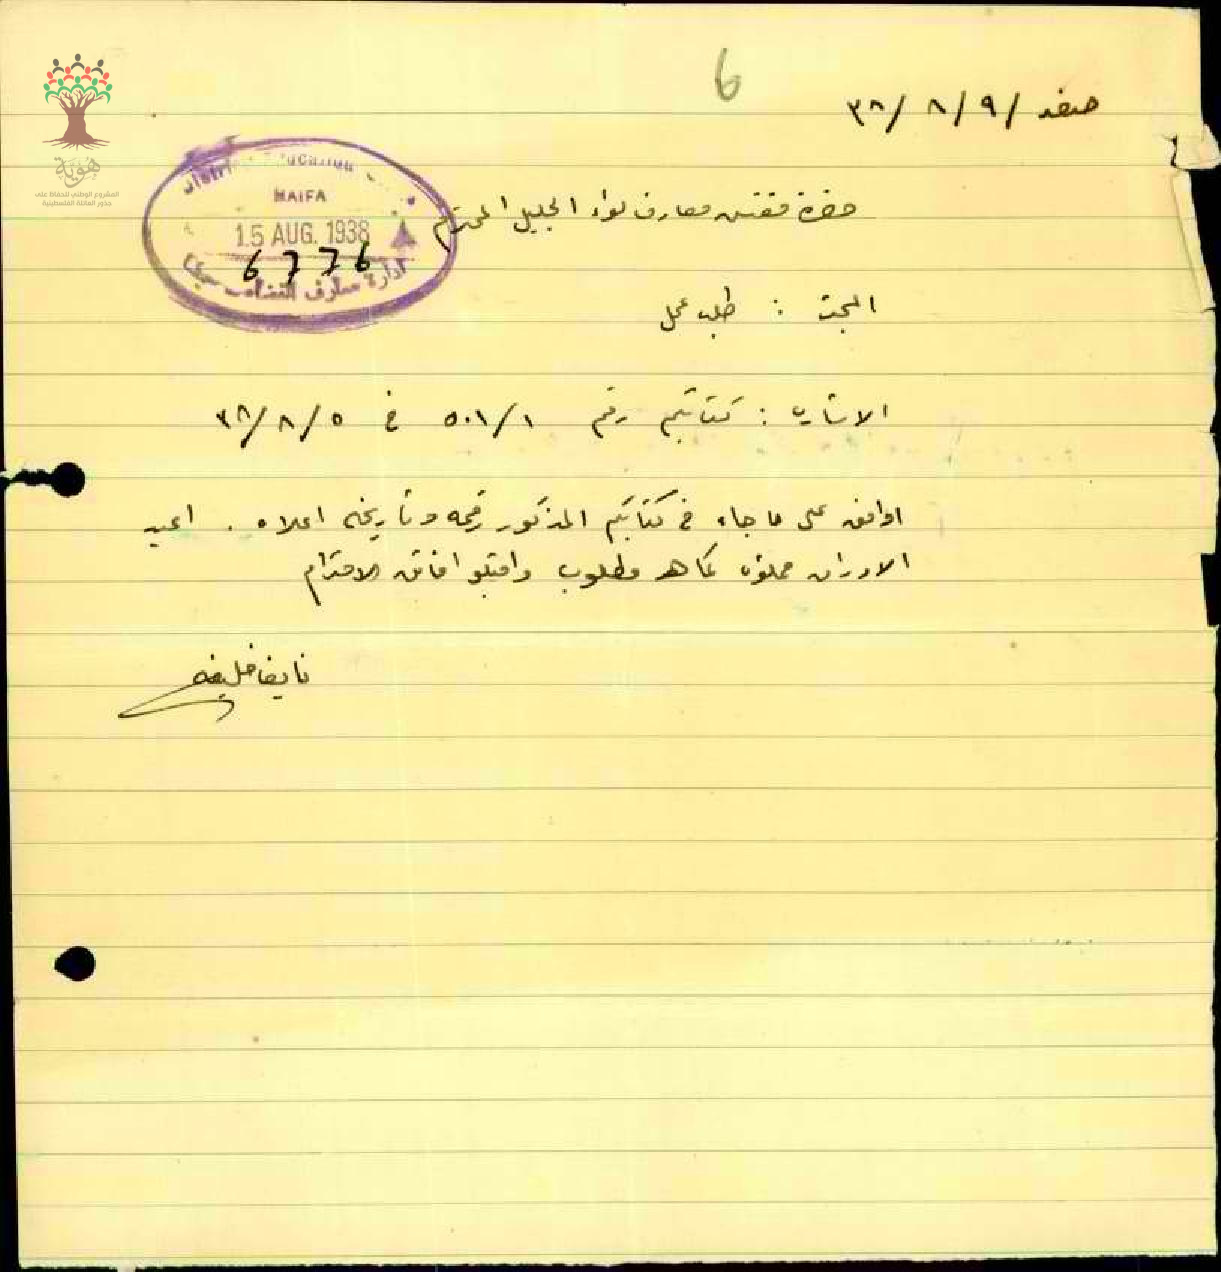 6
صفد ٣٨/٨/٩
هوية
المشروع الوطني للحفاظ على
جذور العائلة الفلسطينية
HAIFA
15 AUG. 1938
6776
ادارة معارف
حضرة مفتش معارف لواء الجليل المحترم
البحث : طلب عمل
الاشارة : كتابكم رقم ٥٠١/١ في ٣٨/٨/٥
اوافق على ما جاء في كتابكم المذكور رقمه وتأريخه اعلاه . اعيد
الاوراق مملؤه كما هو مطلوب واقبلوا فائق الاحترام
نايف خليفه